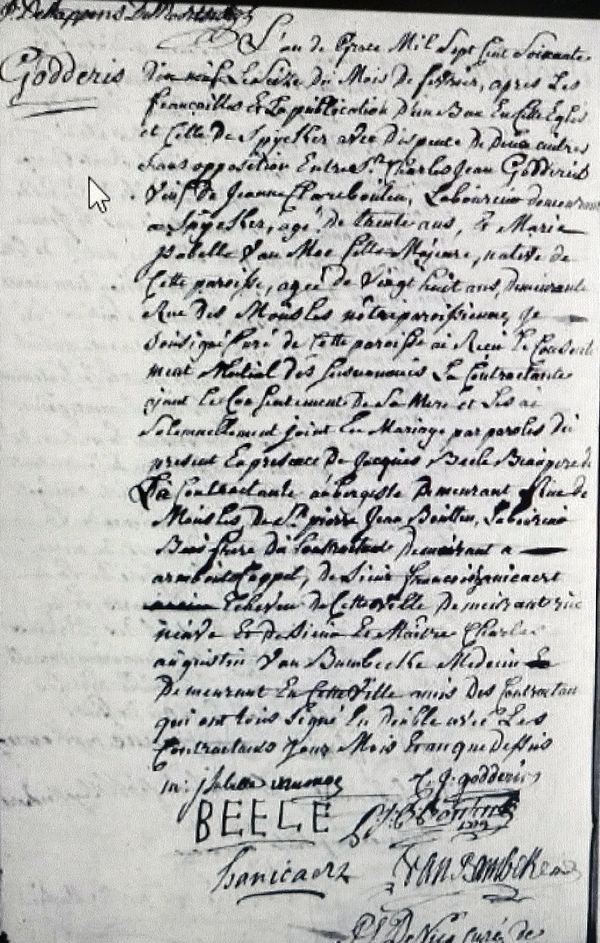 L'an de Grace Mil Sept Cent Soixante
Godderis
dix neuf Le Seize du Mois De fevrier, apres Les
fiancailles Et La publication D'un Ban En Cette Eglise
et Celle De Spycker avec dispence De Deux autres
Sans opposition Entre Sr. Charles Jean Godderis
Veuf De Jeanne Clareboudt, Laboureur demeurant
a Spycker, agé De trente ans, Et Marie
Isabelle Van Moe fille Majeure, native de
Cette paroisse, agée De Vingt huit ans, Demeurante
Rue Des Moësles nôtre paroissienne, Je
soussigné Curé de Cette paroisse ai Recu Le Consente
ment Mutuel Des Susnommés La Contractante
ajant Le Consentement De Sa Mere et Les ai
Solemnellement joint En Mariage par paroles De
present En presence De Jacques Beele Beaupere de
La Contractante Demeurant Rue De
Moësles, De Sr. pierre Jean, Laboureur
Beaufrere Du Contractant Demeurant a
armbouts Cappel, De Sieur francois hanicaert
Echevin De Cette Ville Demeurant rue
neuve Et De Sieur Et Maître Charles
augustin Van Bambecke Medecin
Demeurant En Cette Ville amis Des Contractans
qui ont tous Signé En Double avec Les
Contractans Jour Mois Et an que Dessus
m: jsabelle
C. J. godderis
BEELE
hanicaert
Van Bambeke
Curé de